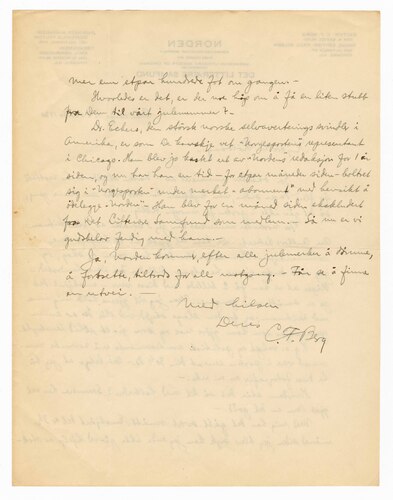 mer enn etpar hundrede fot om gangen. -
Hvorledes er det, er der noe håp om å få en liten stubb
fra Dem til vårt julenummer? -
Dr. Eckers, den største norske selvaverterings svindler i
Amerika, er som De kanskje vet "Norgesposten"s representant
i Chicago. Han blev jo kastet ut av "Norden"s redaksjon for 1 år
siden, og nu har han en tid - for etpar måneder siden - boltret
sig i "Norgesposten" under merket "abonnent" med hensikt å
ødelegge "Norden". Han blev for en måned siden ekskludert
fra Det Litterære Samfund som medlem. - Så nu er vi
gudskelov ferdig med ham. -
Ja, Norden kommer, efter alle julemerker å dømme,
å fortsette, tiltross for all motgang. - Får se å finne
en utvei. -
Med hilsen
Deres
C. F. Berg